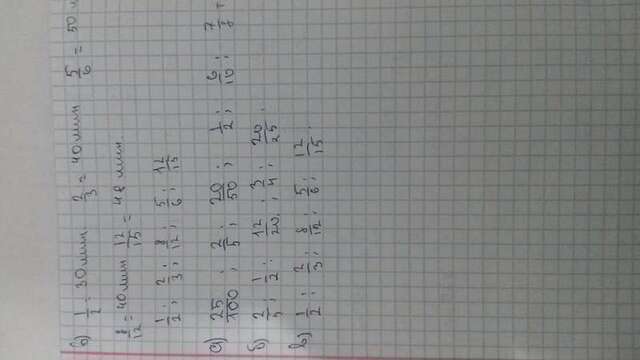 в) 1/2 = 30 мин. 2/3 = 40 мин 5/6 = 50
8/12 = 40 мин 12/15 = 48 мин.
1/2 ; 2/3 ; 8/12 ; 5/6 ; 12/15
а) 25/100 ; 2/5 ; 20/50 ; 1/2 ; 6/10 ; 7/8
б) 2/5 ; 1/2 ; 12/20 ; 3/4 ; 20/25 .
в) 1/2 ; 2/3 ; 8/12 ; 5/6 ; 12/15 .